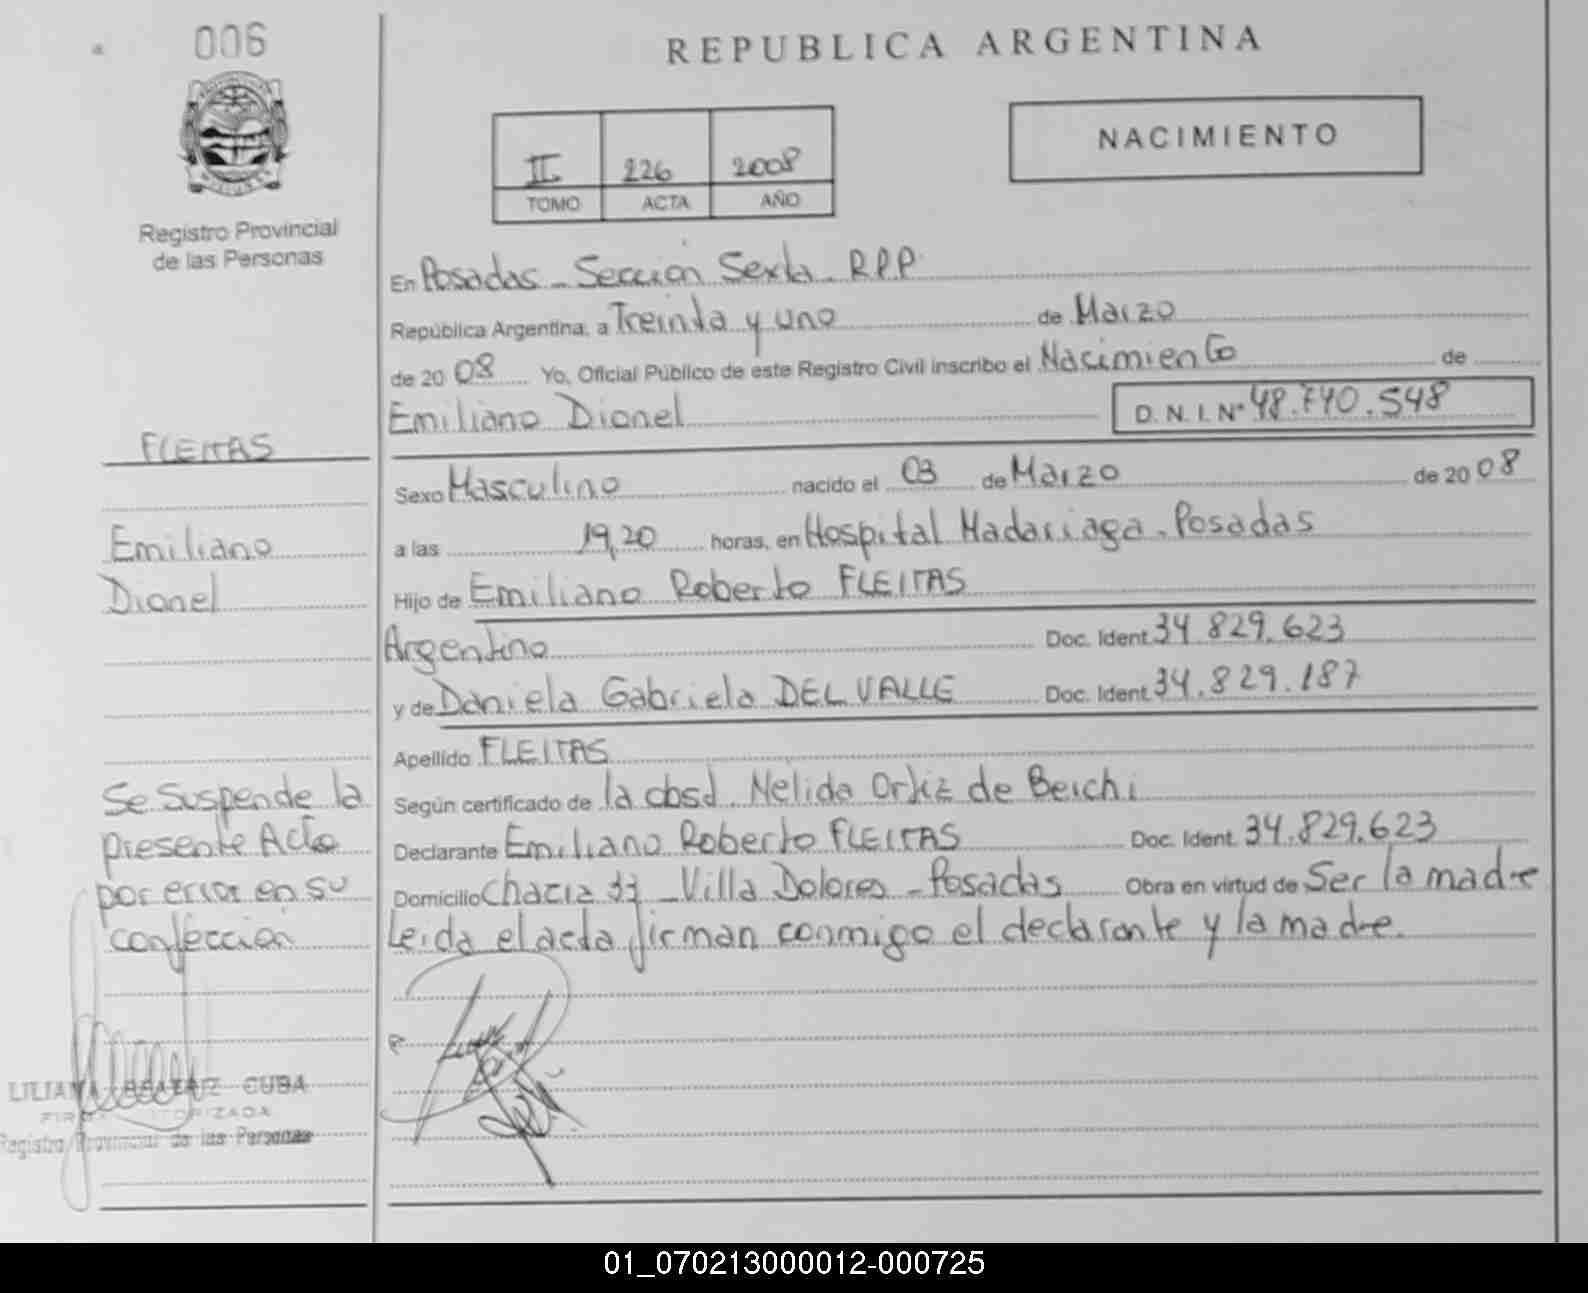 006
REPUBLICA ARGENTINA
NACIMIENTO
II 226 2008
TOMO ACTA AÑO
Registro Provincial
de las Personas
En Posadas - Sección Sexta - RPP
República Argentina, a Treinta y uno de Marzo
de 20 08 Yo, Oficial Público de este Registro Civil inscribo el Nacimiento de
Emiliano Dionel D. N. I. Nº 48.740.548
FLEITAS
Sexo Masculino nacido el 03 de Marzo de 20 08
Emiliano
a las 19,20 horas, en Hospital Madariaga. Posadas
Dionel
Hijo de Emiliano Roberto FLEITAS
Argentino Doc. Ident. 34.829.623
y de Daniela Gabriela DEL VALLE Doc. Ident. 34.829.187
Apellido FLEITAS
Según certificado de la obsd. Nelida Ortiz de Beichi
Declarante Emiliano Roberto FLEITAS Doc. Ident. 34.829.623
Domicilio Chacra - Villa Dolores - Posadas Obra en virtud de Ser la madre
Leida el acta firman conmigo el declarante y la madre.
Se suspende la
presente Acta
por error en su
confección
LILIANA BEATRIZ CUBA
FIRMA AUTORIZADA
Registro Provincial de las Personas
01_070213000012-000725